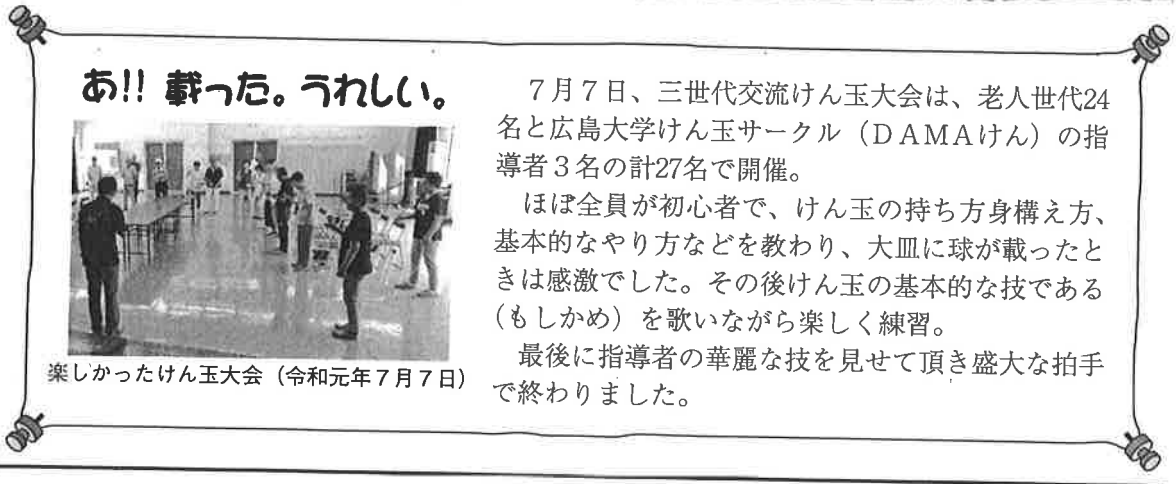 あ!! 載った。うれしい。
楽しかったけん玉大会（令和元年７月７日）
７月７日、三世代交流けん玉大会は、老人世代24
名と広島大学けん玉サークル（ＤＡＭＡけん）の指
導者３名の計27名で開催。
ほぼ全員が初心者で、けん玉の持ち方身構え方、
基本的なやり方などを教わり、大皿に球が載ったと
きは感激でした。その後けん玉の基本的な技である
（もしかめ）を歌いながら楽しく練習。
最後に指導者の華麗な技を見せて頂き盛大な拍手
で終わりました。